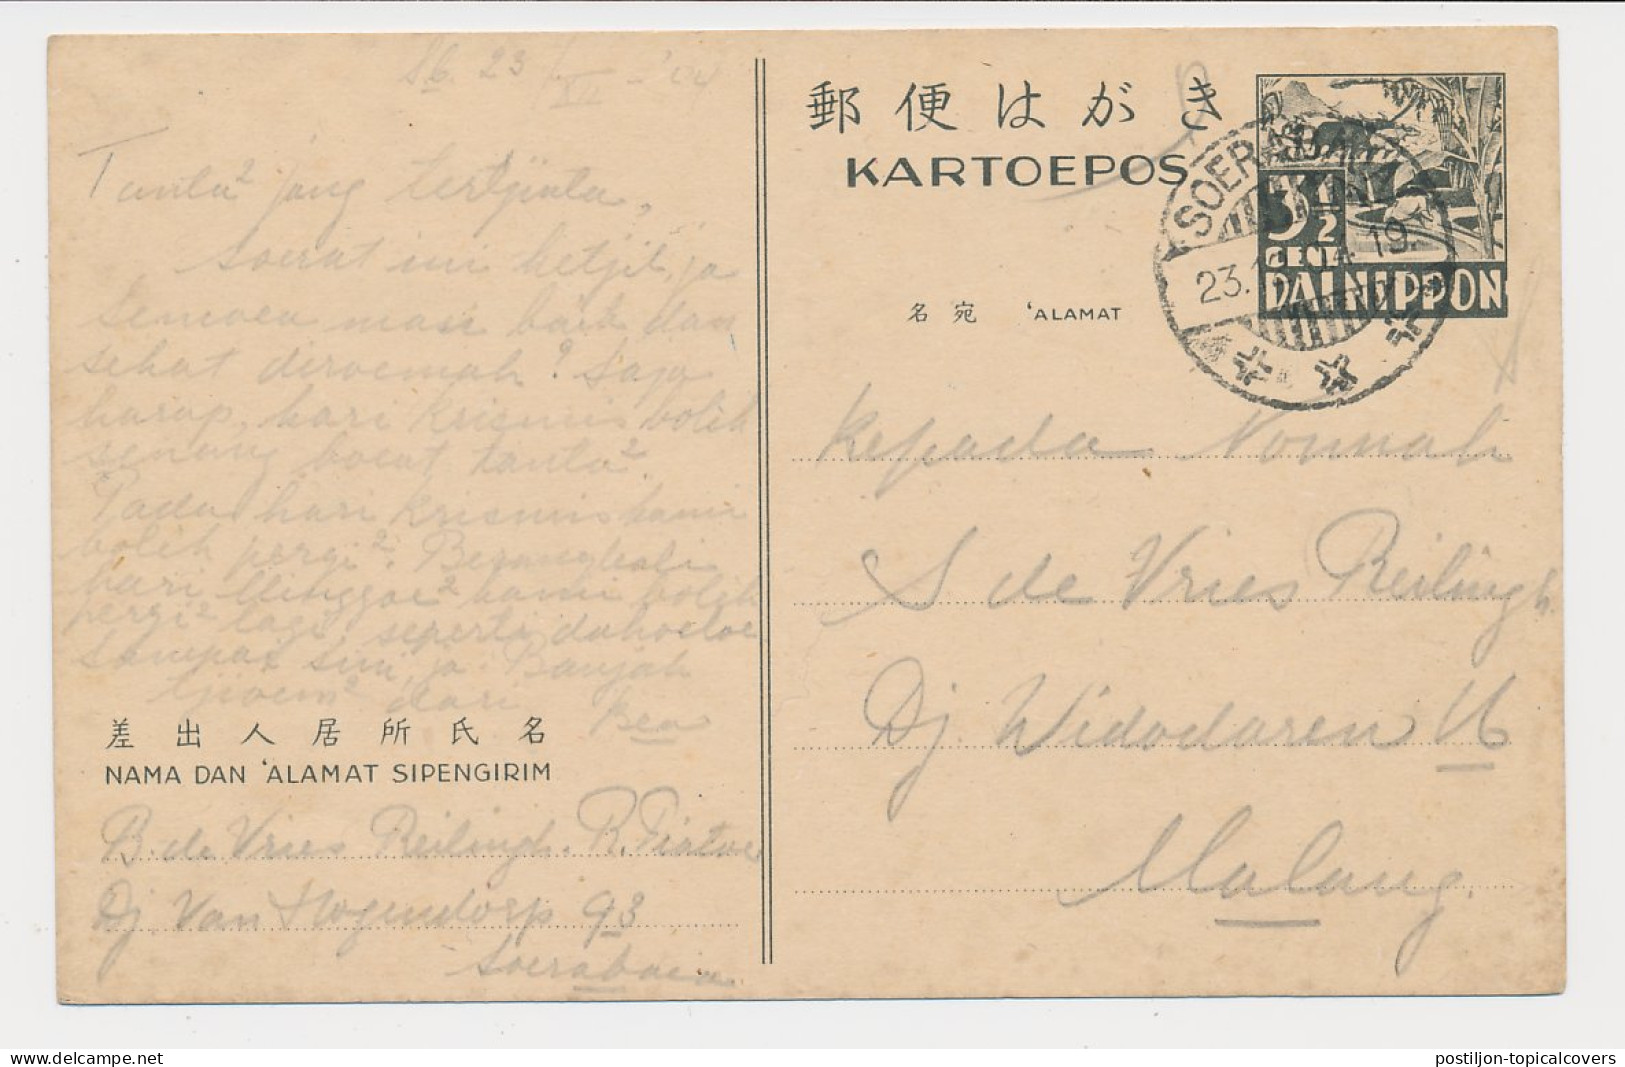 Sb. 23/XII - '04
Tanta² jang tertjinta,
Soerat ini ketjil, ja
Semoea masi baik dan
sehat diroemah? Saja
harap, hari krismis bolih
senang boeat tanta².
Pada hari krismis kami
bolih pergi². Berangkali
hari Minggoe² kami bolih
pergi² lagi, seperti dahoeloe
sampai sini, ja. Banjak
tjioem² dari
Bea
差出人居所氏名
NAMA DAN 'ALAMAT SIPENGIRIM
B. de Vries Reilingh.
Dj Van Hogendorp 93
Soerabaia
郵便はがき
KARTOEPOS
3½
CENT
DAI NIPPON
SOERABAIA
23.12.04. 19.
名宛 'ALAMAT
Kepada Nonnah
S de Vries Reilingh.
Dj Widodaren 16
Malang.
postiljon-topicalcovers